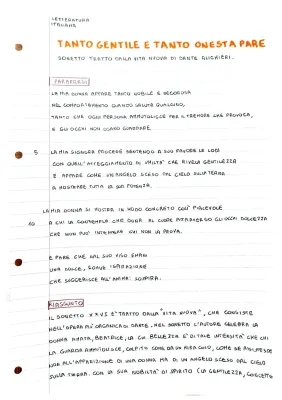 LETTERATURA
ITALIANA
TANTO GENTILE E TANTO ONESTA PARE
SONETTO TRATTO DALLA VITA NUOVA DI DANTE ALIGHIERI.
PARAFRASI
LA MIA DONNA APPARE TANTO NOBILE E DECOROSA
NEL COMPORTAMENTO QUANDO SALUTA QUALCUNO,
TANTO CHE OGNI PERSONA AMMUTOLISCE PER IL TREMORE CHE PROVOCA,
E GLI OCCHI NON OSANO GUARDARE.
5 LA MIA SIGNORA PROCEDE SENTENDO A SUO FAVORE LE LODI
CON QUELL'ATTEGGIAMENTO DI UMILTÀ CHE RIVELA GENTILEZZA
E APPARE COME UN ANGELO SCESO DAL CIELO SULLA TERRA
A MOSTRARE TUTTA LA SUA POTENZA.
LA MIA DONNA SI MOSTRA IN MODO CONCRETO COSÌ PIACEVOLE
10 A CHI LA CONTEMPLA CHE DONA AL CUORE ATTRAVERSO GLI OCCHI DOLCEZZA
CHE NON PUÒ INTENDERE CHI NON LA PROVA.
E PARE CHE DAL SUO VISO EMANI
UNA DOLCE, SOAVE ISPIRAZIONE
CHE SUGGERISCE ALL'ANIMA: SOSPIRA.
RIASSUNTO
IL SONETTO XXVI È TRATTO DALLA "VITA NUOVA", CHE CONSISTE
NELL'OPERA PIÙ ORGANICA DI DANTE. NEL SONETTO L'AUTORE CELEBRA LA
DONNA AMATA, BEATRICE, LA CUI BELLEZZA È DI TALE INTENSITÀ CHE CHI
LA GUARDA AMMUTOLISCE, COLPITO COME DA UN MIRACOLO, COME SE ASSISTESSE
NON ALL'APPARIZIONE DI UNA DONNA MA DI UN ANGELO SCESO DAL CIELO
SULLA TERRA. CON LA SUA NOBILTÀ DI SPIRITO (LA GENTILEZZA, CONCETTO